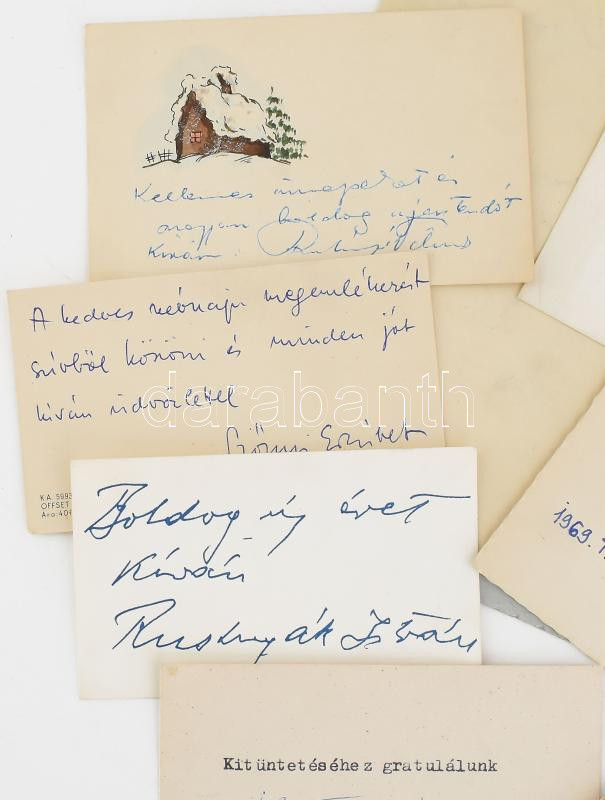 Kellemes ünnepeket és
nagyon boldog újesztendőt
Kíván:
A kedves névnapi megemlékezést
szívből köszöni és minden jót
kíván üdvözlettel
Szőnyi Erzsébet
K.A. 5993
OFFSET
Ára: 40 f
Boldog új évet
Kíván
Rusznyák István
1969. 11
Kitüntetéséhez gratulálunk
darabanth